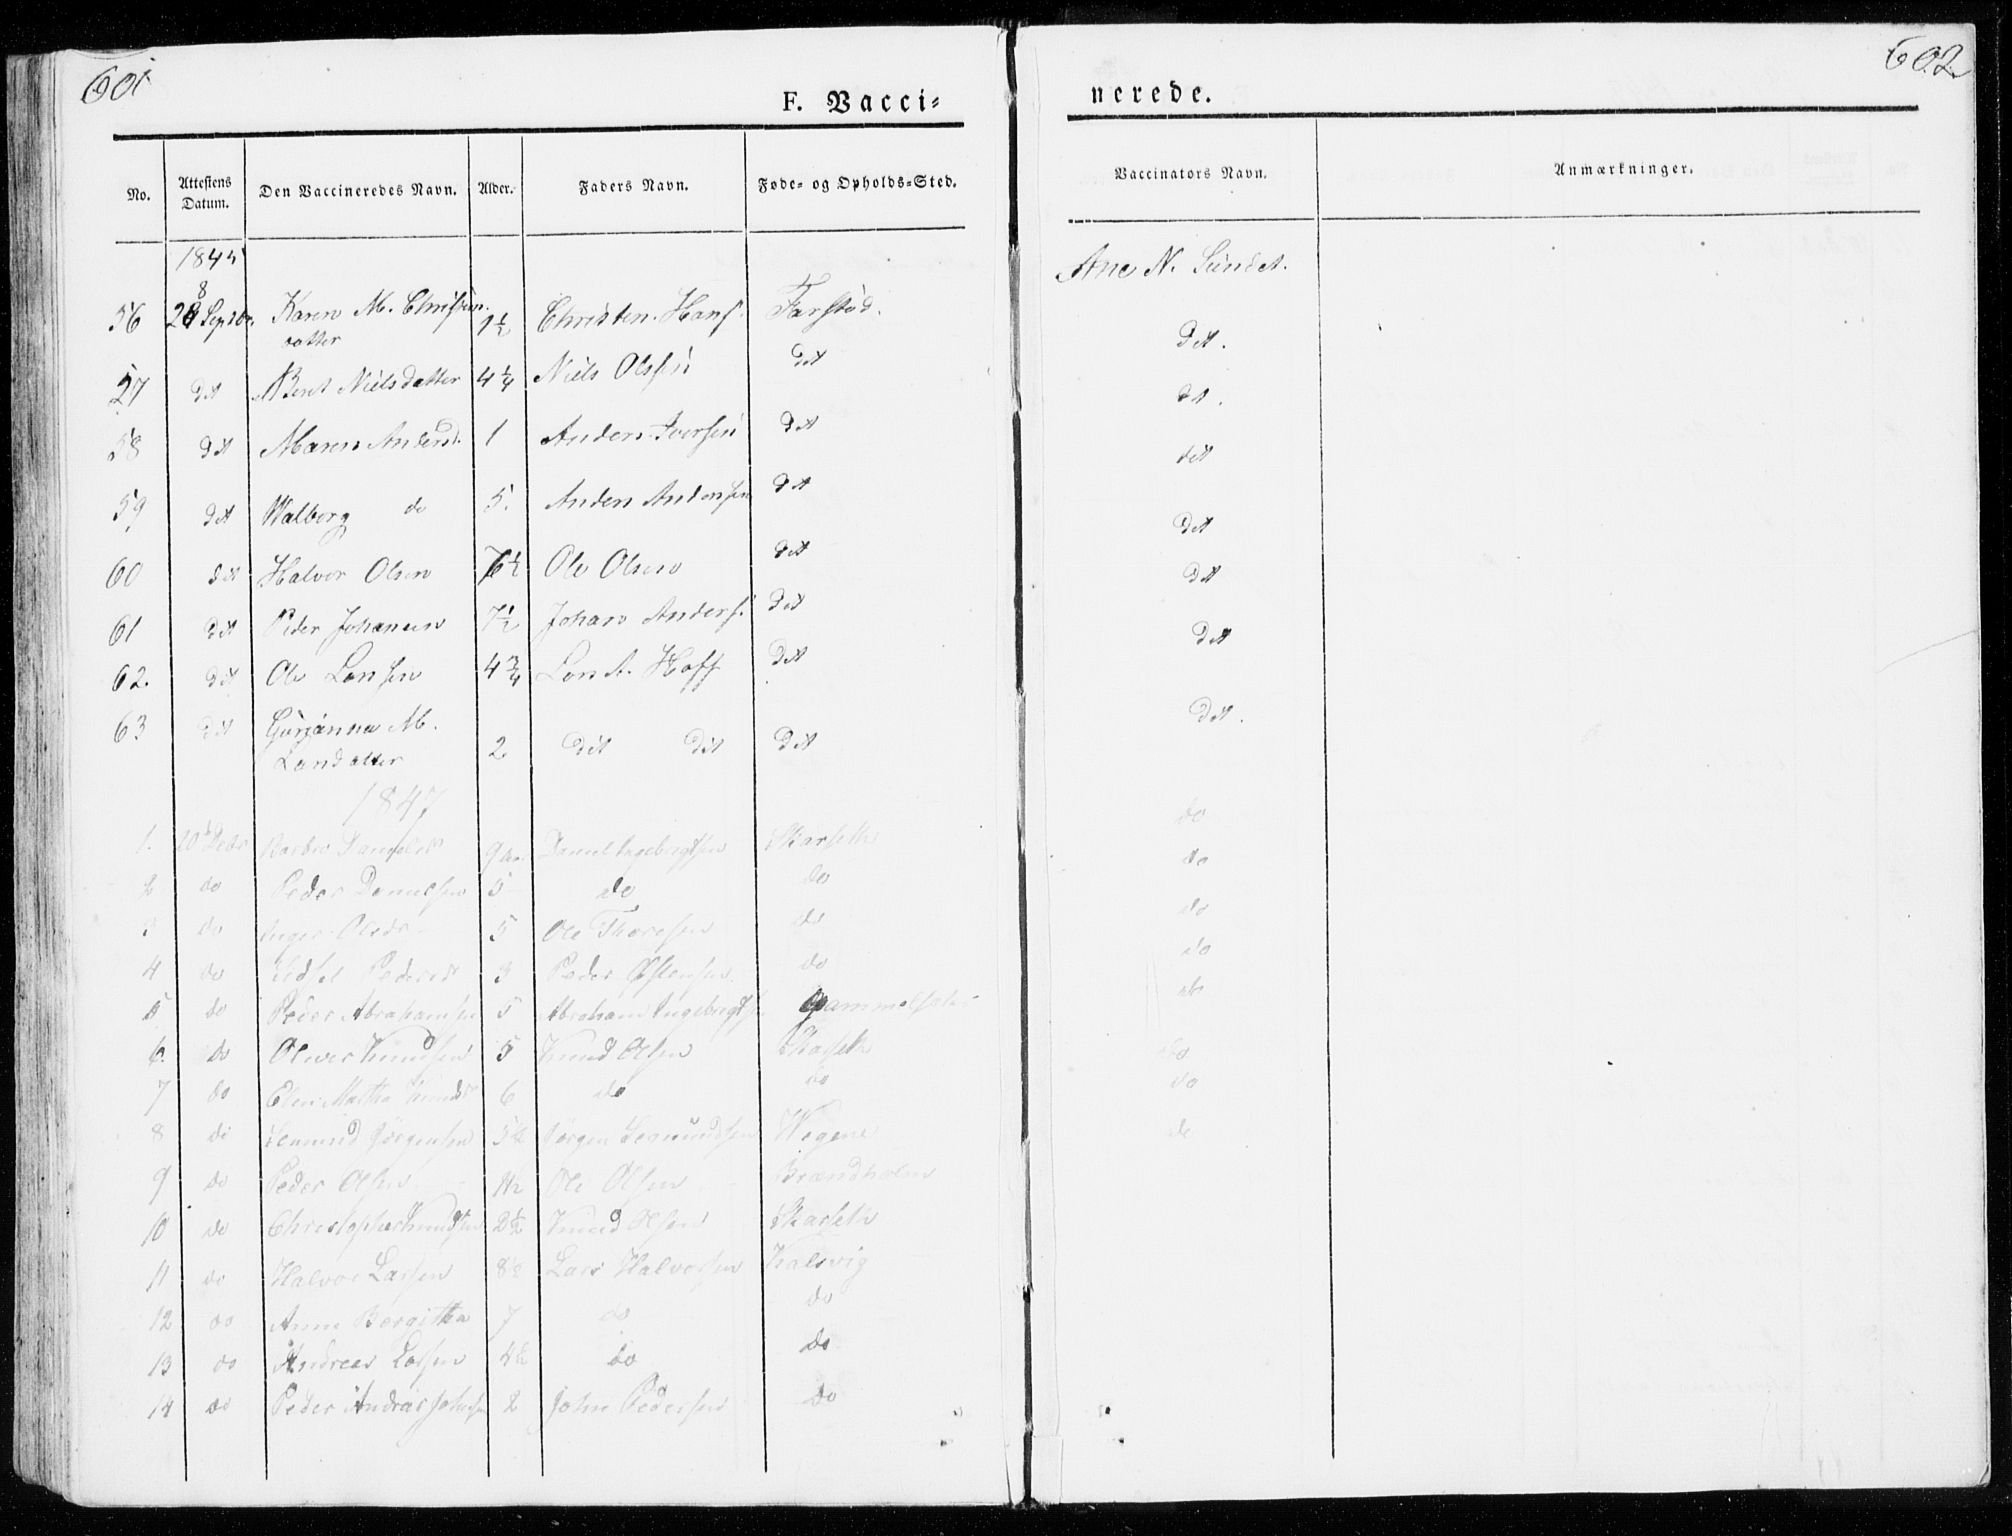 601
602
F. Vacci=
nerede.
No.
Attestens Datum.
Den Vaccineredes Navn.
Alder.
Faders Navn.
Føde= og Opholds=Sted.
Vaccinators Navn.
Anmærkninger.
1845
56 28 Septbr. Karen M. Christen datter 1½ Christen Hans. Farstød. Ane N. Sundet.
57 dit Berit Nielsdatter 4¼ Niels Olsen dit dit.
58 dit Maren Andersd. 1 Anders Iversen dit dit.
59 dit Walborg do 5. Anders Andersen dit dit
60 dit Halvor Olsen 6½ Ole Olsen dit dit
61 dit Peder Johansen 7½ Johan Anders. dit dit
62. dit Ole Lonsen 4¾ Lon A. Hoff dit dit
63 dit Gurjanna M. Londatter 2 dit dit dit dit.
1847
1. 20 Barbro Danielsd 9 Daniel Ingebrigtsen Skarseth do
2 do Peder Danielsen 5 do do do
3 do Inger Olsdr 5 Ole Thoresen do do
4 do Sidsel Pedersd 3 Peder Østensen do do
5 do Peder Abrahamsen 5 Abraham Ingebrigtsen do
6. do Oliver Knudsen 5 Knud Olsen Skarseth do
7 do Elen Martha Knudsd 6 do do do
8 do Jørgensen 5½ Jørgen Wegene do
9 do Peder Olsen 1½ Ole Olsen Brændholm
10 do Christopher Knudsen 2½ Knud Olsen Skarseth
11 do Halvor Larsen 8½ Lars Halvorsen Kalsvig
12 do Anne Bergitha 7 do do
13 do Andreas Larsen 4½ do do
14 do Peder Andreas Johnsen 2 John Pedersen do